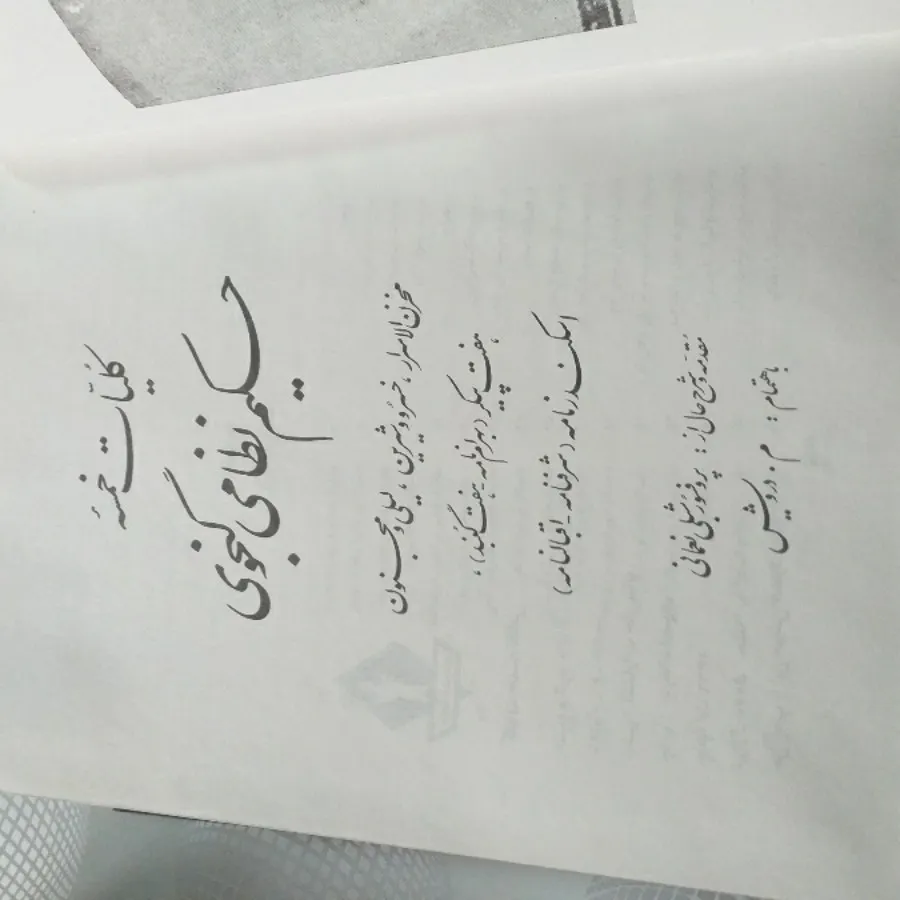 کلیّات خمسهٔ
حکیم نظامی گنجوی
مخزن الاسرار، خسرو و شیرین، لیلی و مجنون
هفت پیکر (بهرام‌نامه - هفت گنبد)،
اسکندرنامه (شرفنامه - اقبالنامه)
مقدمه و شرح حال از: پروفسور شبلی نعمانی
باهتمام: م. درویش